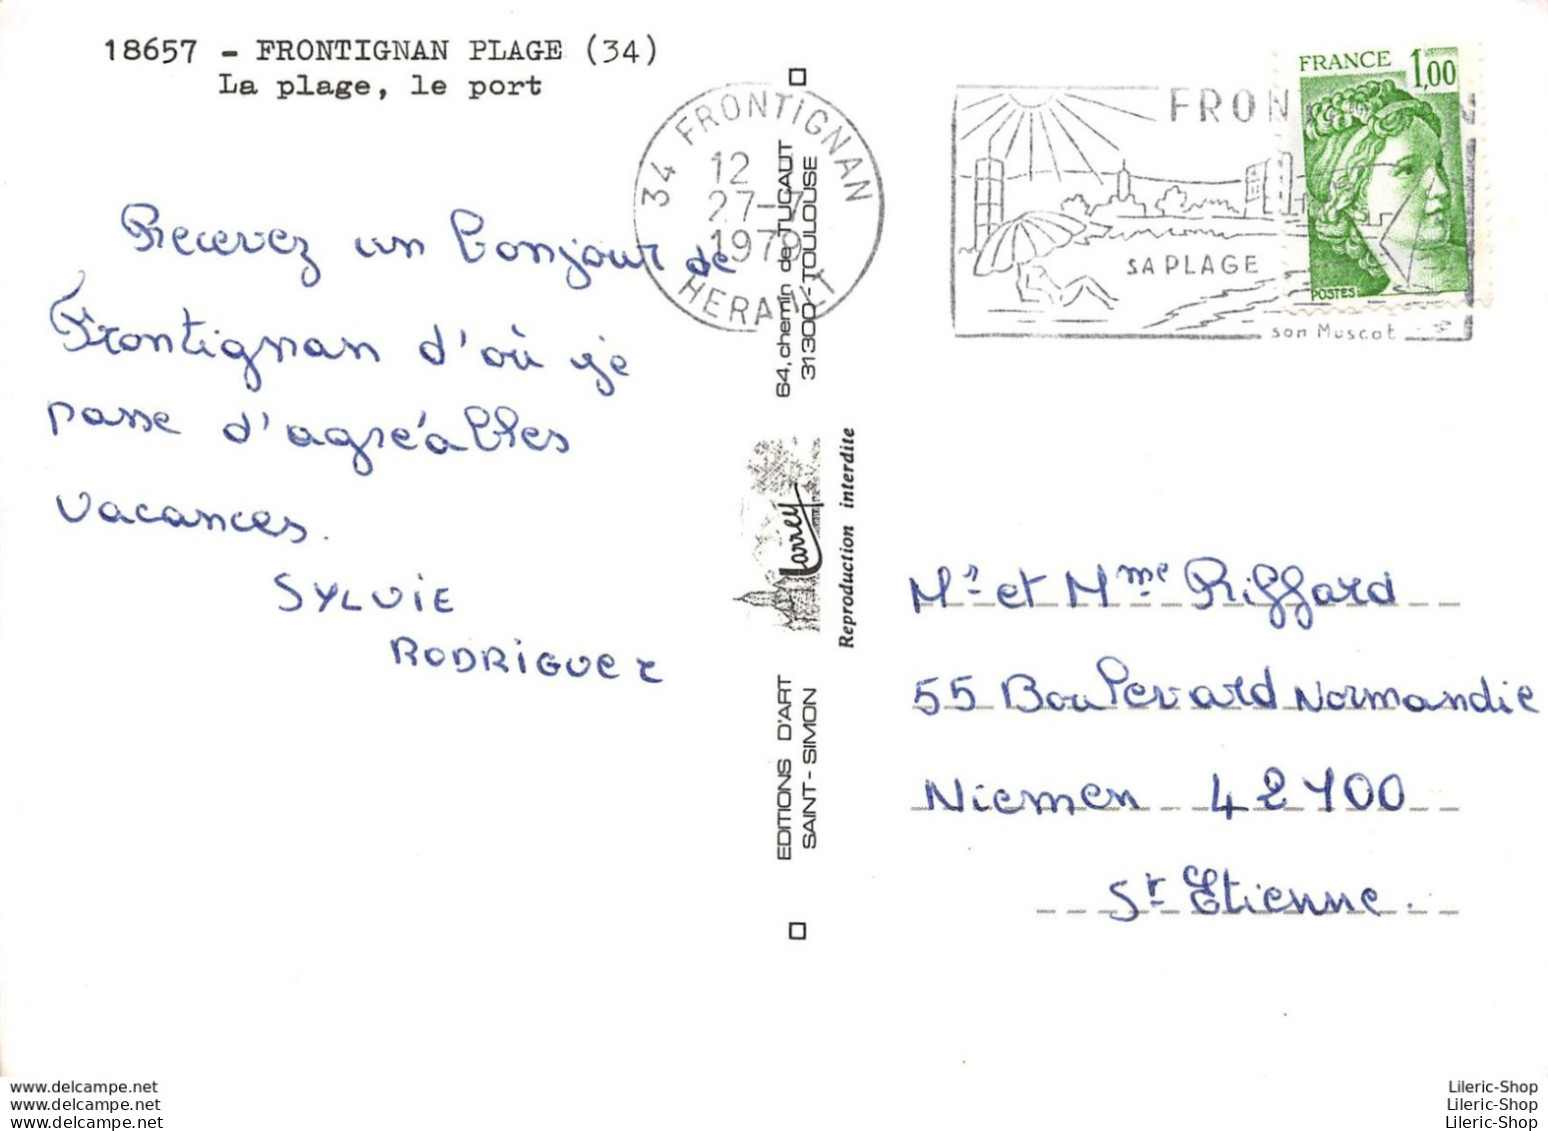 18657 - FRONTIGNAN PLAGE (34)
La plage, le port
Recevez un bonjour de
Frontignan d'où je
passe d'agréables
vacances.
SYLVIE
RODRIGUEZ
34 FRONTIGNAN
12
27-7
1979
HERAULT
64, chemin de TUCAUT
31300 - TOULOUSE
Larrey
Reproduction interdite
EDITIONS D'ART
SAINT-SIMON
FRON N
SA PLAGE
son Muscat
FRANCE 1,00
POSTES
Mr et Mme Riffard
55 Boulevard Normandie
Niemen 42100
St Etienne.
www.delcampe.net
www.delcampe.net
www.delcampe.net
Lileric-Shop
Lileric-Shop
Lileric-Shop